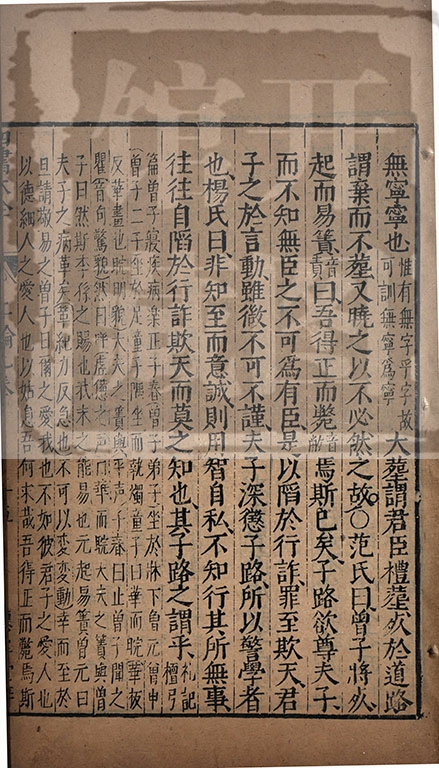 無寧寧也惟有無字乎字故可訓無寧為寧大葬謂君臣禮葬死於道路
謂棄而不葬又曉之以不必然之故○范氏曰曾子將死
起而易簀音責曰吾得正而斃音敝焉斯已矣子路欲尊夫子
而不知無臣之不可為有臣是以陷於行詐罪至欺天君
子之於言動雖微不可不謹夫子深懲子路所以警學者
也楊氏曰非知至而意誠則用智自私不知行其所無事
往往自陷於行詐欺天而莫之知也其子路之謂乎礼記檀弓
篇曾子寢疾病樂正子春曾子弟子坐於牀下曾元曾申
曾子二子坐於足童子隅坐而執燭童子曰華而睆華板
反華畫也睆明貌大夫之簀與平声子春曰止曾子聞之
瞿音句驚貌然曰呼虛憊之声曰華而睆大夫之簀與曾
子曰然斯季孫之賜也我未之能易也元起易簀曾元曰
夫子之病革矣革紀力反急也不可以変変動幸而至於
旦請敬易之曾子曰爾之愛我也不如彼君子之愛人也
以德細人之愛人也以姑息吾何求哉吾得正而斃焉斯